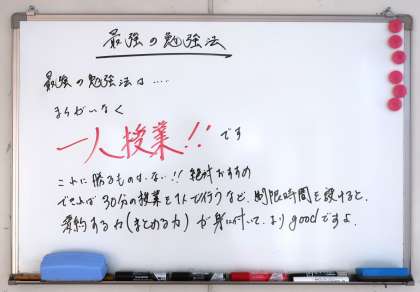 最強の勉強法
最強の勉強法は....
まちがいなく
一人授業!! です
これに勝るものはない!! 絶対おすすめ
できれば 30分の授業を1人で行うなど、制限時間を設けると、
要約する力(まとめる力) が身に付いて、より goodですよ.